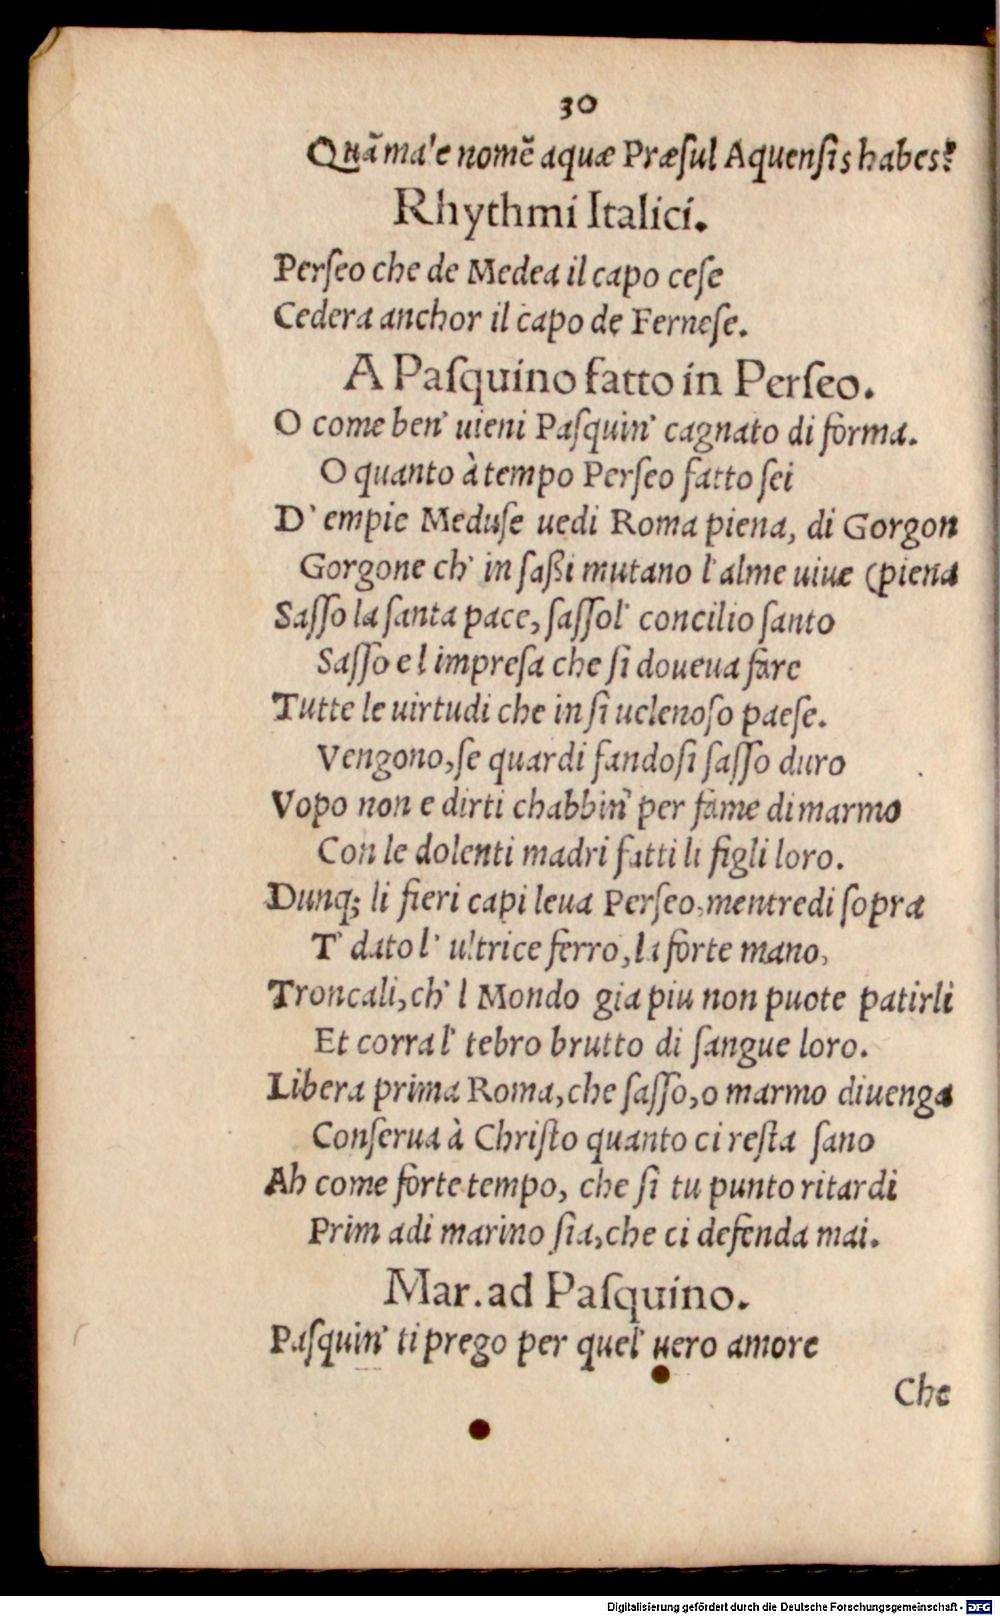 30
Quã ma'e nomẽ aquæ Præſul Aquenſis habes?
Rhythmi Italici.
Perſeo che de Medea il capo ceſe
Cedera anchor il capo de Ferneſe.
A Paſquino fatto in Perſeo.
O come ben' uieni Paſquin' cagnato di forma.
O quanto à tempo Perſeo fatto ſei
D' empie Meduſe uedi Roma piena, di Gorgon
Gorgone ch' in ſaßi mutano l'alme uiue (piena
Saſſo la ſanta pace, ſaſſo l' concilio ſanto
Saſſo e l impreſa che ſi doueua fare
Tutte le uirtudi che in ſi uelenoſo paeſe.
Vengono, ſe quardi fandoſi ſaſſo duro
Vopo non e dirti chabbin' per fame di marmo
Con le dolenti madri fatti li figli loro.
Dunq; li fieri capi leua Perſeo, mentre di ſopra
T' dato l' ultrice ferro, la forte mano,
Troncali, ch' l Mondo gia piu non puote patirli
Et corra l' tebro brutto di ſangue loro.
Libera prima Roma, che ſaſſo, o marmo diuenga
Conſerua à Chriſto quanto ci reſta ſano
Ah come forte tempo, che ſi tu punto ritardi
Prim adi marino ſia, che ci defenda mai.
Mar. ad Paſquino.
Paſquin' ti prego per quel' uero amore
Che
Digitalisierung gefördert durch die Deutsche Forschungsgemeinschaft - DFG